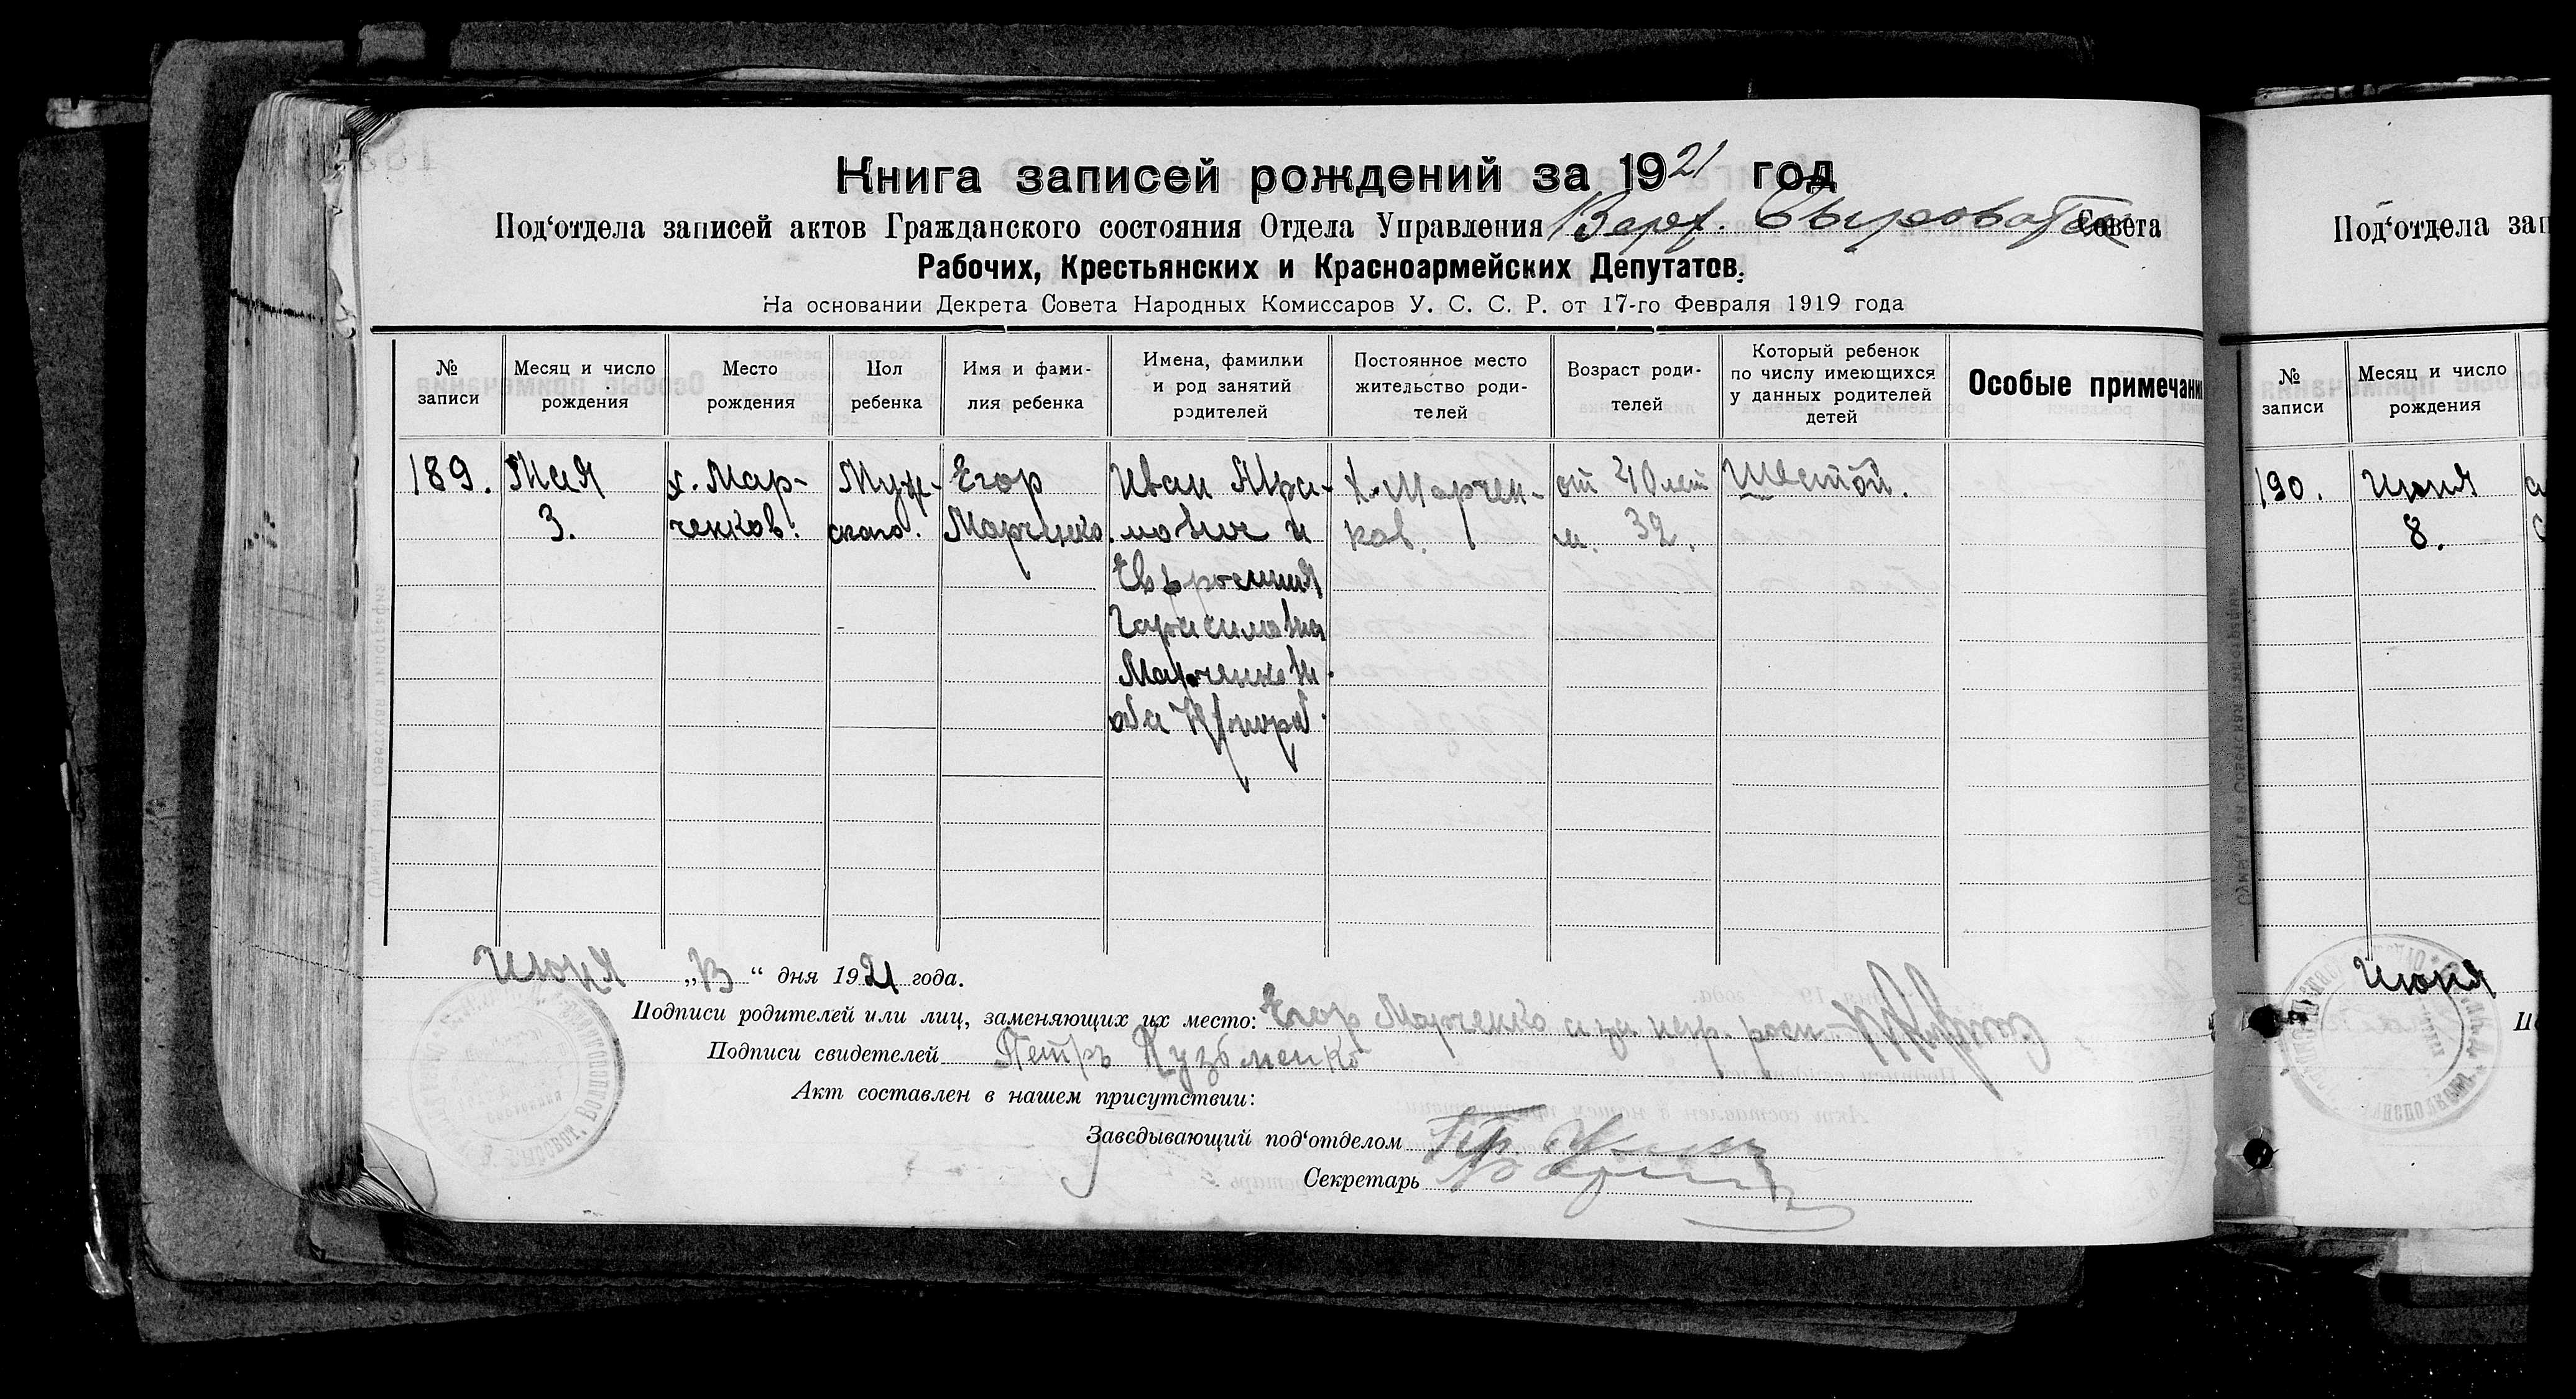 Книга записей рождений за 1921 год
Под‘отдела записей актов Гражданского состояния Отдела Управления Верх. Сыроватск Совета
Рабочих, Крестьянских и Красноармейских Депутатов.
На основании Декрета Совета Народных Комиссаров У. С. С. Р. от 17-го Февраля 1919 года
№ записи
Месяц и число рождения
Место рождения
Пол ребенка
Имя и фами-
лия ребенка
Имена, фамилии
и род занятий
родителей
Постоянное место
жительство роди-
телей
Возраст роди-
телей
Который ребенок
по числу имеющихся
у данных родителей
детей
Особые примечани
189.
Мая
3.
х. Мар-
ченков.
Муж-
ского.
Егор
Марченко.
Иван
мович и
Евфросиния
Герасимовна
Марченкови
оба
х. Марчен-
ков.
от 40 лет
м. 32.
Шестой.
Июня „13“ дня 1921 года.
Подписи родителей или лиц, заменяющих их место: Егор Марченко а за негр. рост
Подписи свидетелей Петръ Кузьменко
Акт составлен в нашем присутствии:
Заведывающий под‘отделом
Секретарь
Под‘отдела зап
№
записи
Месяц и число
рождения
190.
Июня
8.
Июня